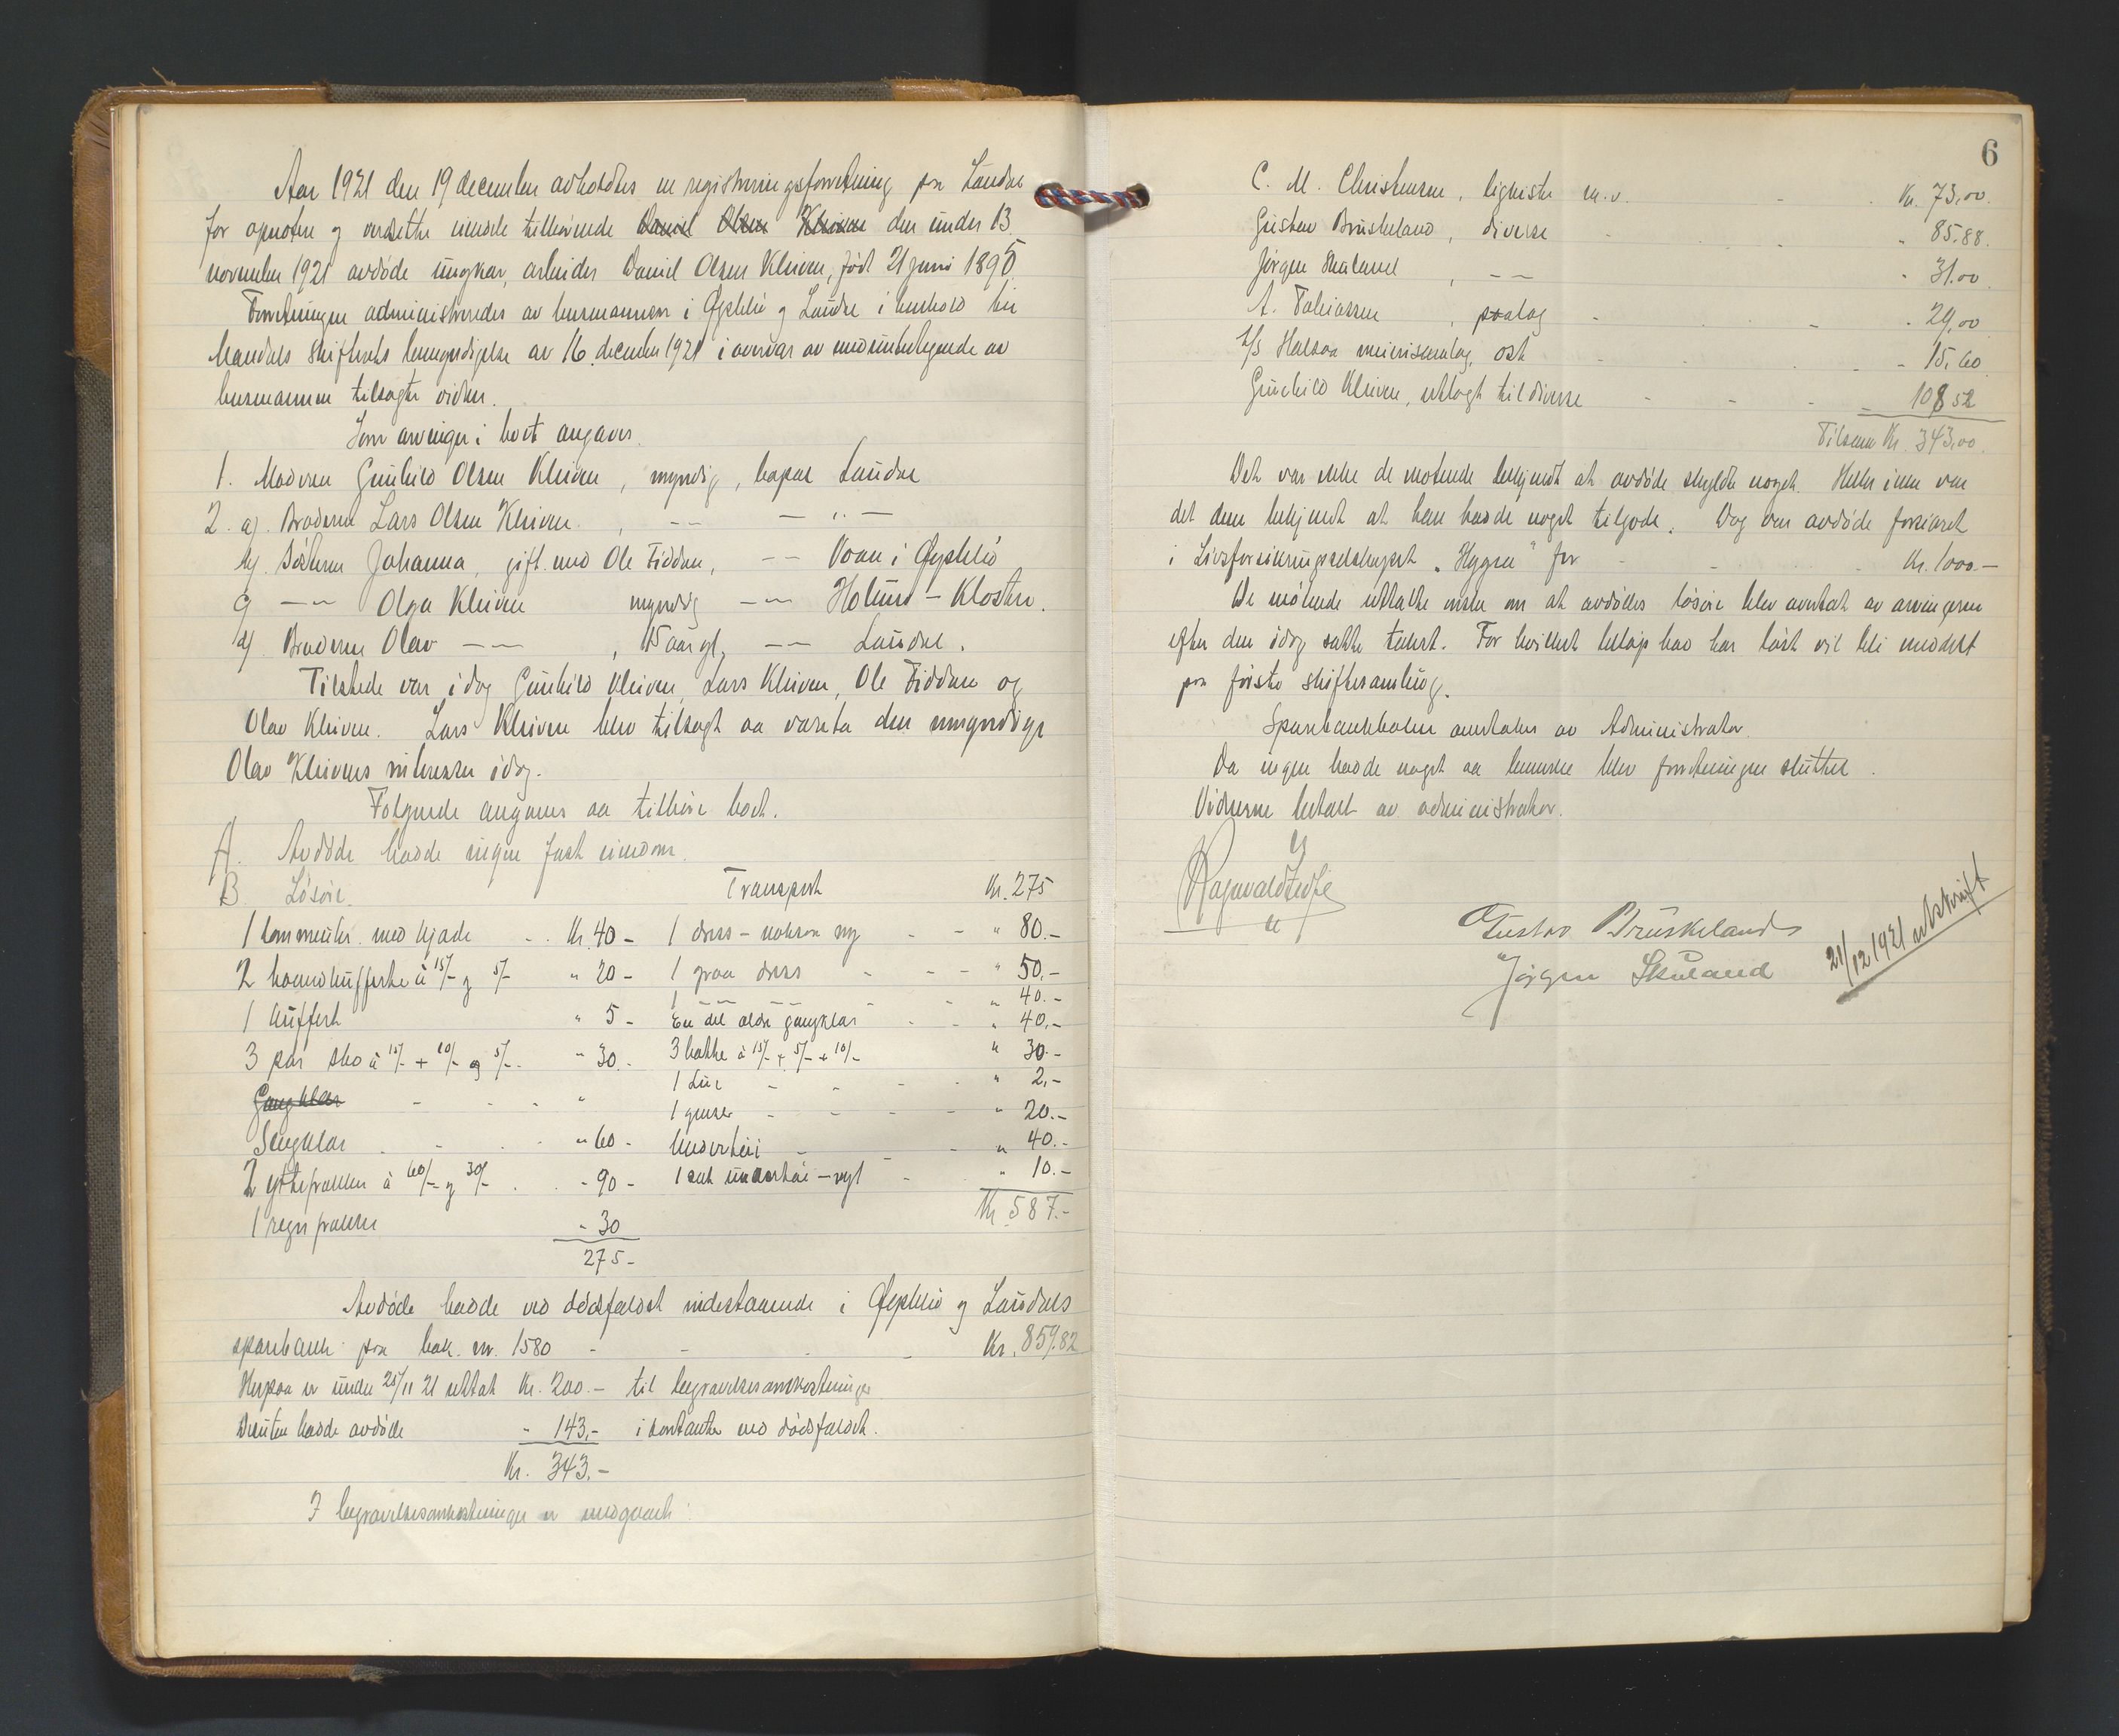 Aar 1921 den 19 december avholdtes en registreringsforretning paa Laudal
for opnoten og verdsette eiendele tilhørende Daniel Olsen Kleiven den under 13
november 1921 avdöde ungkar, arbeider Daniel Olsen Kleiven, född 21 juni 1895.
Forretningen administreredes av lensmannen i Öyslebö og Laudal i henhold til
Mandals skifterets bemyndigelse av 16. december 1921 i overvær av medundertegnede av
lensmannen tilsagte vidner.
Som arvinger i boet angaves.
1. Moderen Gunhild Olsen Kleiven, myndig, bopæl Laudal
2. a). Broderen Lars Olsen Kleiven, -"- -"-
b). Sösteren Johanna, gift med Ole Fiddan, -"- Voan i Öyslebö
c) -"- Olga Kleiven myndig -"- Holum - Kloster.
d). Broderen Olav -"-, 15 aar gl, -"- Laudal.
Tilstede var idag Gunhild Kleiven, Lars Kleiven, Ole Fiddan og
Olav Kleiven. Lars Kleiven blev tilsagt aa vareta den umyndige
Olav Kleivens interesser idag.
Følgende angaves aa tilhöre boet.
A. Avdöde hadde ingen fast eiendom.
B. Lösöre. Transport Kr. 275
1 lommeuhr med kjede Kr. 40 - 1 dress - noksaa ny " 80.-
2 haandkufferter à 15/- og 5/- " 20 - 1 graa dress " 50.-
1 -"- -"- " 40.-
1 kuffert " 5 - En del ældre gangklær " 40.-
3 par sko à 15/- + 10/- og 5/- " 30.- 3 hatte à 15/- + 5/- + 10/- " 30.-
1 Lue " 2,-
Gangklær " 1 genser " 20.-
Sengklær " 60 - Undertöi " 40.-
2 ytterfrakker à 60/- og 30/- " 90 - 1 sæt undertöi - nyt " 10.-
1 regnfrakke " 30 Kr. 587.-
275 -
Avdöde hadde ved dödsfaldet indestaaende i Öyslebö og Laudals
sparebank paa bok. nr. 1580 Kr. 859.82
Herpaa er under 25/11 21 uttat Kr. 200.- til begravelsesomkostninger
Desuten hadde avdöde " 143,- i kontanter ved dödsfaldet.
Kr. 343.-
I begravelsesomkostninger er medgaat:
6
C. M. Christensen, ligkiste m.v. Kr. 73,00.
Gustav Bruskeland, diverse " 85.88.
Jörgen Skuland, -"- " 31.00
A. Tobiassen, paalæg " 29,00
A/S Halsaa meierisamlag, ost " 15,60
Gunhild Kleiven, utlagt til diverse " 108 52
Tilsam Kr. 343,00.
Det var ikke de motende bekjendt at avdöde skyldte noget. Heller ikke var
det dem bekjendt at han hadde noget tilgode. Dog var avdöde forsikret
i Livsforsikringsselskapet „Hygea" for Kr. 1000.-
De mötende uttalte önske om at avdödes lösöre blev overtat av arvingerne
efter den idag satte takst. For hvilket belöp bod har löst vil bli meddelt
paa förste skiftesamling.
Sparebankboken overtages av Administrator.
Da ingen hadde noget aa bemerke blev forretningen sluttet.
Vidnerne betalt av administrator.
Gustav Bruskeland
Jörgen Skuland
21/12 1921 utskrift